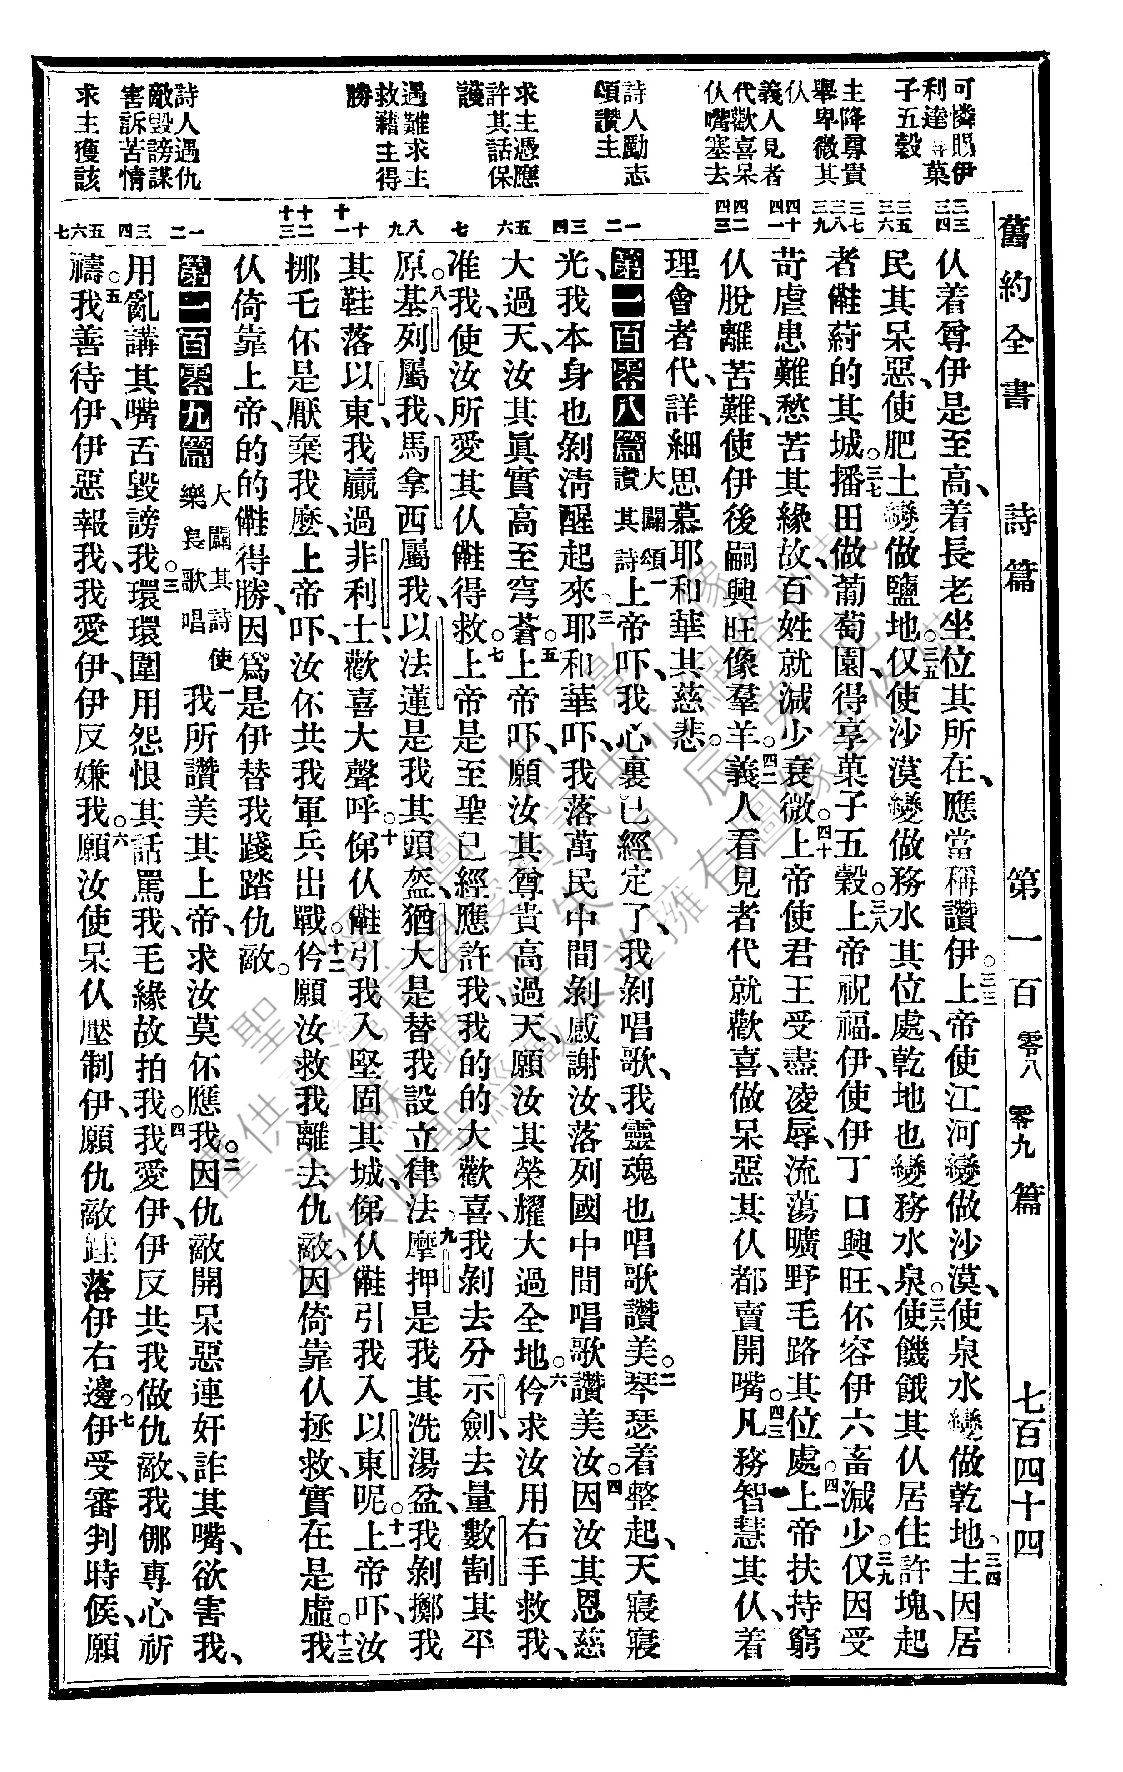 舊約全書 詩篇 第一百零八 零九篇 七百四十四
可憐賜伊
利達等菓
子五穀
主降尊貴
舉卑微其
仏
義人見者
代歡喜呆
仏嘴塞去
詩人勵志
頌讚主
求主憑應
許其話保
護
遇難求主
救藉主得
勝
詩人遇仇
敵毀謗謀
害訴苦情
求主獲該
仏着尊伊是至高、着長老坐位其所在、應當稱讚伊。三三上帝使江河變做沙漠、使泉水變做乾地、三四主因居
民其呆惡、使肥土變做鹽地。三五仅使沙漠變做務水其位處、乾地也變務水泉。三六使饑餓其仏居住許塊、起
者雔葑的其城。三七播田做葡萄園、得享菓子五穀。三八上帝祝福伊、使伊丁口興旺、伓容伊六畜減少。三九仅因受
苛虐患難愁苦其緣故、百姓就減少衰微。四十上帝使君王受盡凌辱、流蕩曠野毛路其位處。四一上帝扶持窮
仏脫離苦難、使伊後嗣興旺像羣羊。四二義人看見者代就歡喜、做呆惡其仏都賣開嘴。四三凡務智慧其仏、着
理會者代、詳細思慕耶和華其慈悲。
第一百零八篇 大闢頌讚其詩 一上帝吓、我心裏已經定了、我剝唱歌、我靈魂也唱歌讚美。二琴瑟着整起、天寢寢
光、我本身也剝清醒起來。三耶和華吓、我落萬民中間剝感謝汝、落列國中間唱歌讚美汝。四因汝其恩慈
大過天、汝其眞實高至穹蒼。五上帝吓、願汝其尊貴高過天、願汝其榮耀大過全地。六仱求汝用右手救我、
准我、使汝所愛其仏雔得救。七上帝是至聖、已經應許我、我的的大歡喜、我剝去分示劍、去量數割其平
原。八基列屬我、馬拿西屬我、以法蓮是我其頭盔、猶大是替我設立律法、九摩押是我其洗湯盆、我剝擲我
其鞋落以東、我贏過非利士、歡喜大聲呼。十俤仏雔引我入堅固其城、俤仏雔引我入以東呢。十一上帝吓、汝
挪乇伓是厭棄我麽、上帝吓、汝伓共我軍兵出戰。十二仱願汝救我離去仇敵、因倚靠仏拯救、實在是虛。十三我
仏倚靠上帝、的的雔得勝、因爲是伊替我踐踏仇敵。
第一百零九篇 大闢其詩使樂長歌唱 一我所讚美其上帝、求汝莫伓應我。二因仇敵開呆惡連奸詐其嘴、欲害我、
用亂講其嘴舌毀謗我。三環環圍用怨恨其話罵我、毛緣故拍我。四我愛伊、伊反共我做仇敵、我㑚專心祈
禱。五我善待伊、伊惡報我、我愛伊、伊反嫌我。六願汝使呆仏壓制伊、願仇敵跬落伊右邊。七伊受審判時候、願